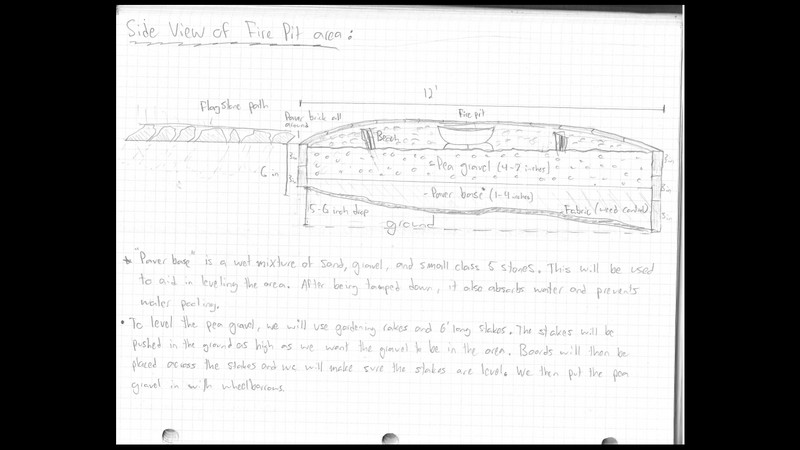 Side View of Fire Pit area:
12'
Flagstone path
Paver brick all
around
Fire pit
Bench
3in
3in
6 in
Pea gravel (4-7 inches)
3in
3in
3in
- Paver base* (1-4 inches)
5-6 inch drop
Fabric (weed control)
ground
* "Paver base" is a wet mixture of sand, gravel, and small class 5 stones. This will be used
to aid in leveling the area. After being tamped down, it also absorbs water and prevents
water pooling.
• To level the pea gravel, we will use gardening rakes and 6' long stakes. The stakes will be
pushed in the ground as high as we want the gravel to be in the area. Boards will then be
placed across the stakes and we will make sure the stakes are level. We then put the pea
gravel in with wheelbarrows.